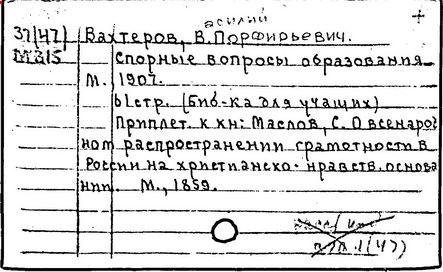 асилий
37(47) Вахтеров, В.Порфирьевич.
М315 Спорные вопросы образования
М. 1907.
61стр. (Биб-ка для учащих)
Приплет. к кн: Маслов, С. О всенарод
ном распространении грамотности в
России на христианско-нравств. основа
нии. М., 1859.
п/п.1(47)